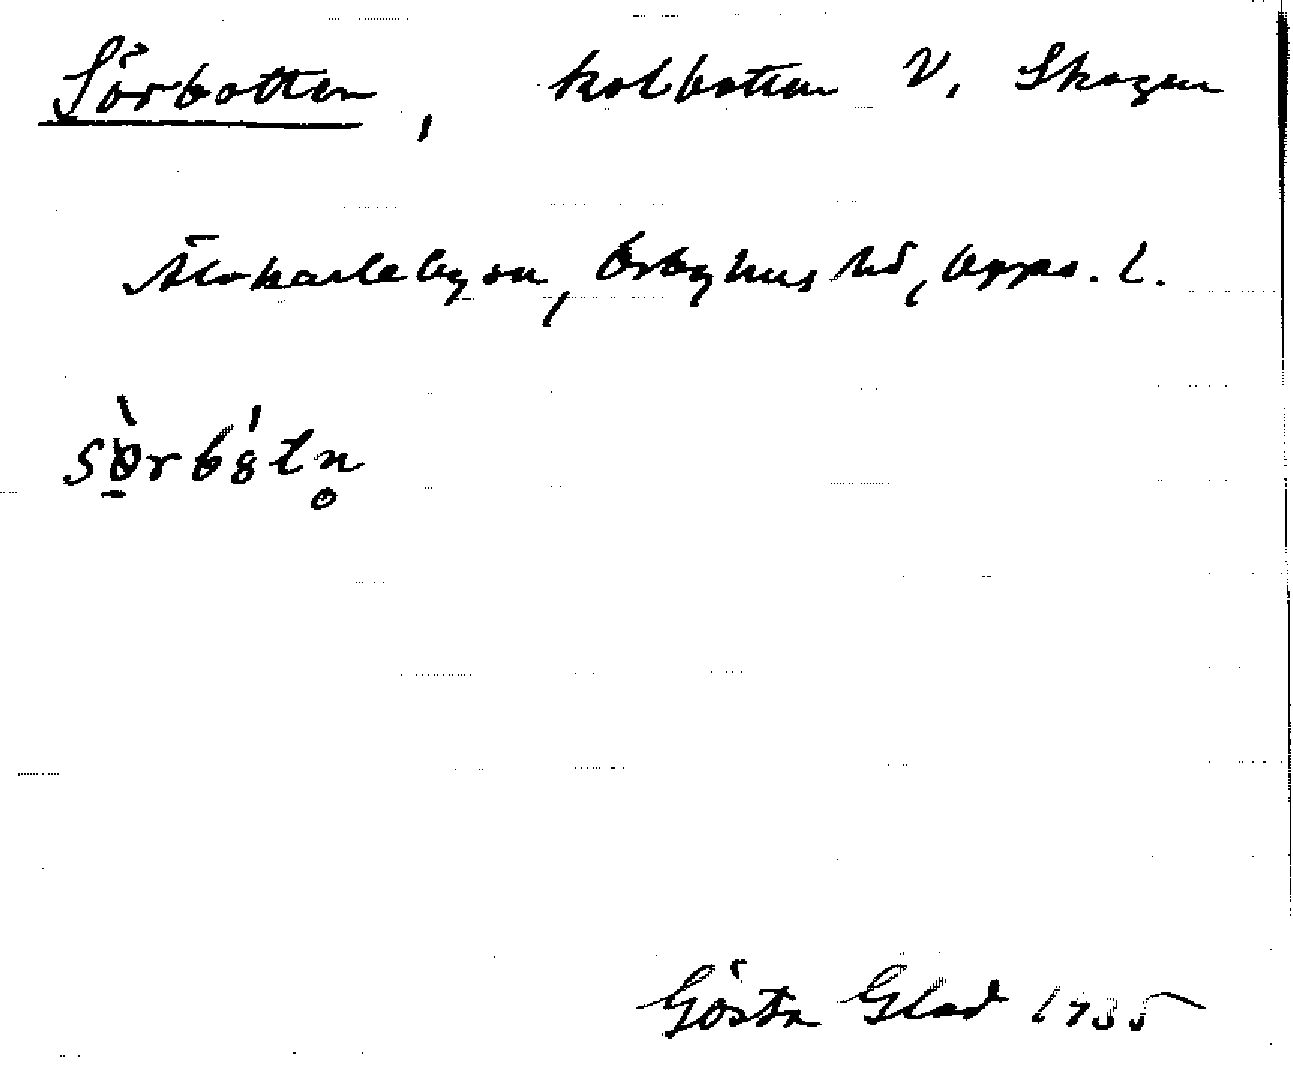 Sörbotten, kolbotten V. Skogen
Älvkarleby sn, Örbyhus hd, Upps. l.
sø̀rbótn̥
Gösta Glad 1935